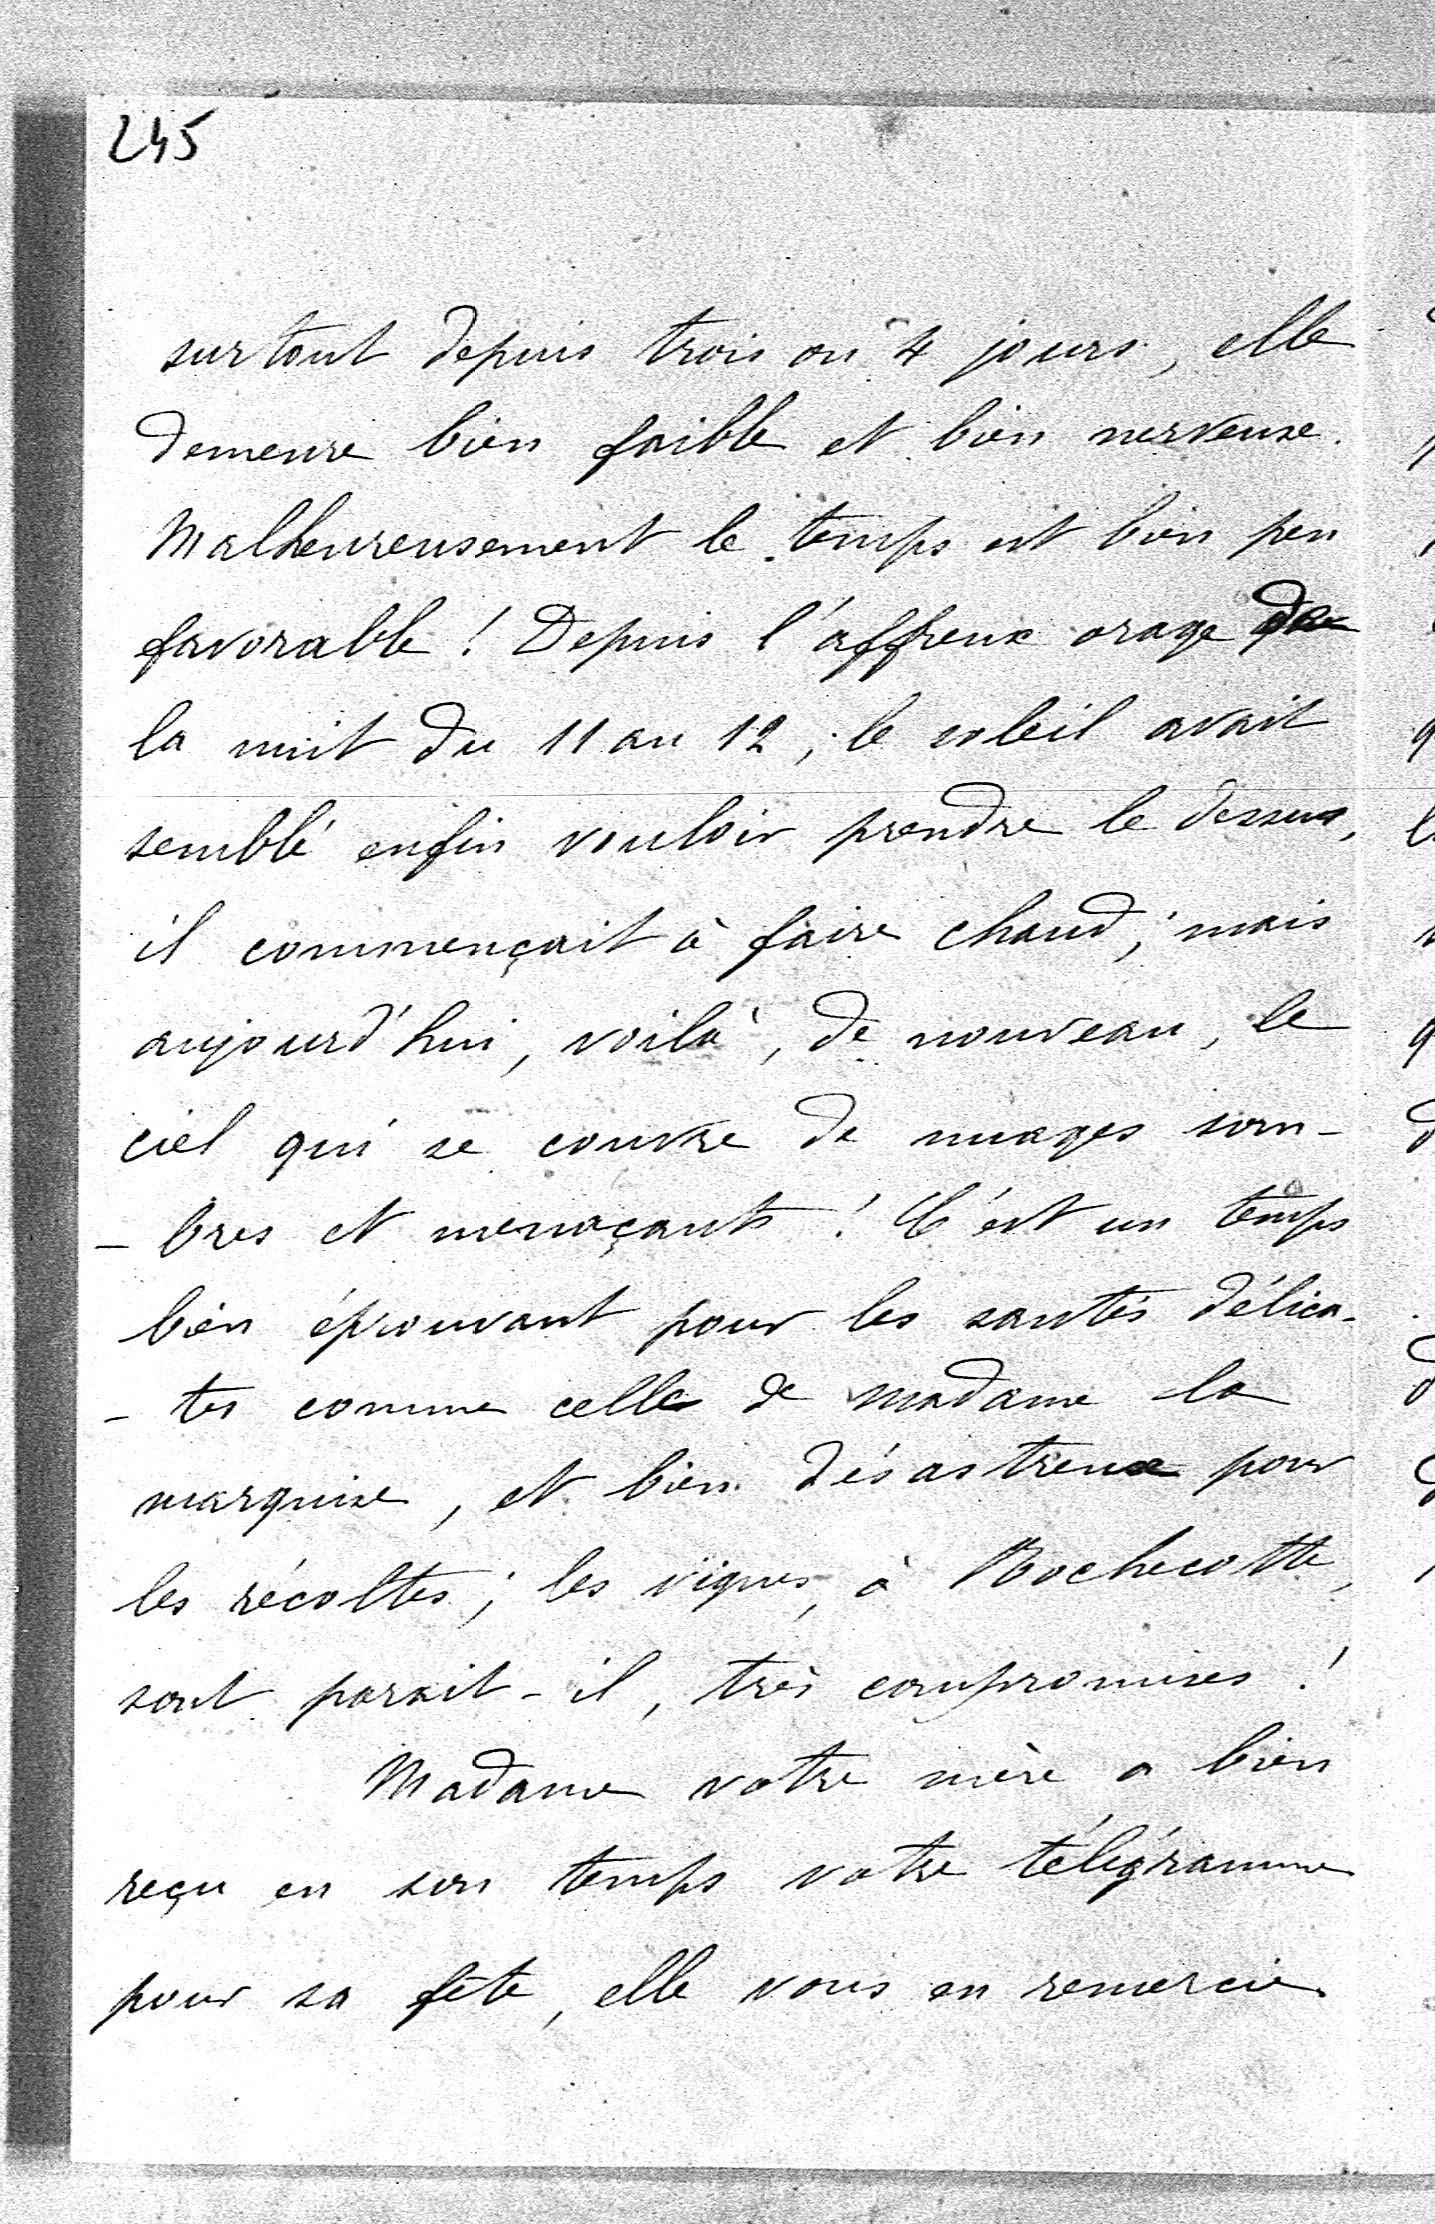 245
surtout depuis trois ou 4 jours, elle
demeure bien faible et bien nerveuse.
Malheureusement le temps est bien peu
favorable ! Depuis l'affreux orage de
la nuit du 11 au 12, le soleil avait
semblé enfin vouloir prendre le dessus,
il commençait à faire chaud ; mais
aujourd'hui, voilà, de nouveau, le
ciel qui se couvre de nuages som-
- bres et menaçants ! C'est un temps
bien éprouvant pour les santés délica-
- tes comme celle de madame la
marquise, et bien désastreux pour
les récoltes ; les vignes, à Rochecotte,
sont parait-il, très compromises !
Madame votre mère a bien
reçu en son temps votre télégramme
pour sa fête, elle vous en remercie.